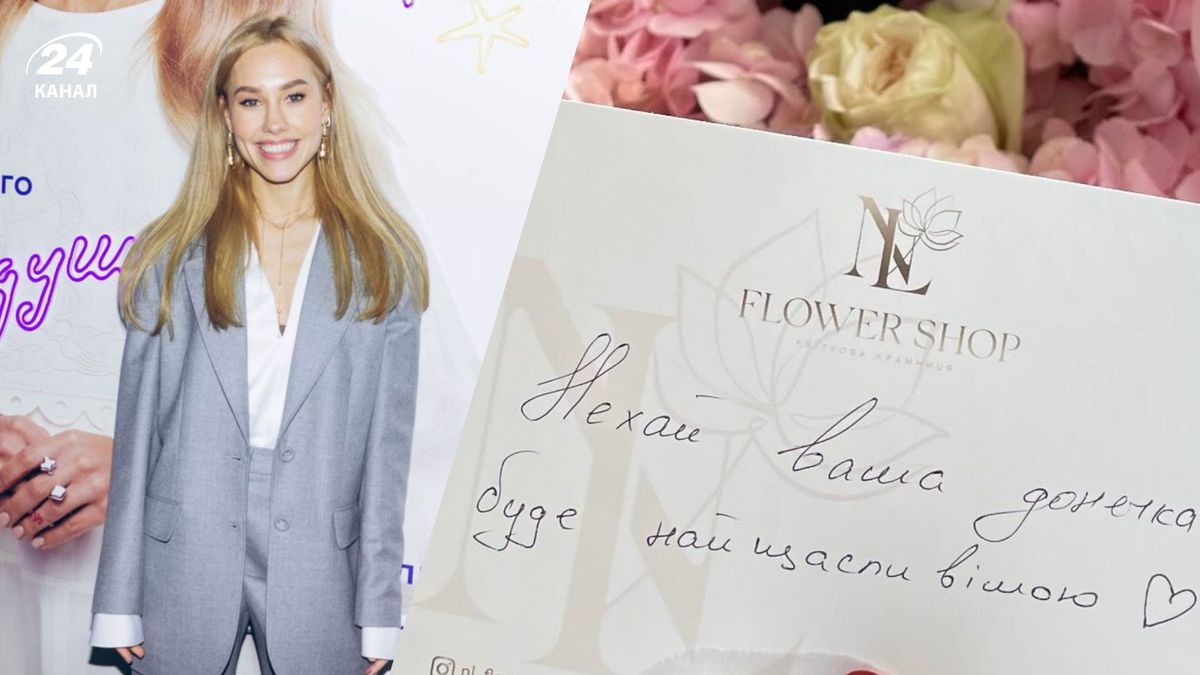 24
КАНАЛ
ГО
душ
NL
FLOWER SHOP
КВІТКОВА КРАМНИЦЯ
Нехай ваша донечка
буде найщасливішою ♡